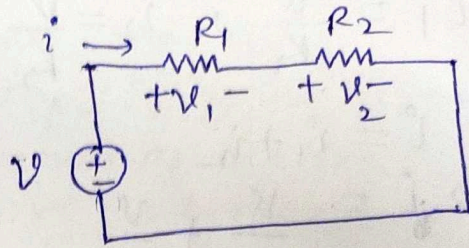 i → R₁ R₂
+ v₁ - + v₂ -
v + -